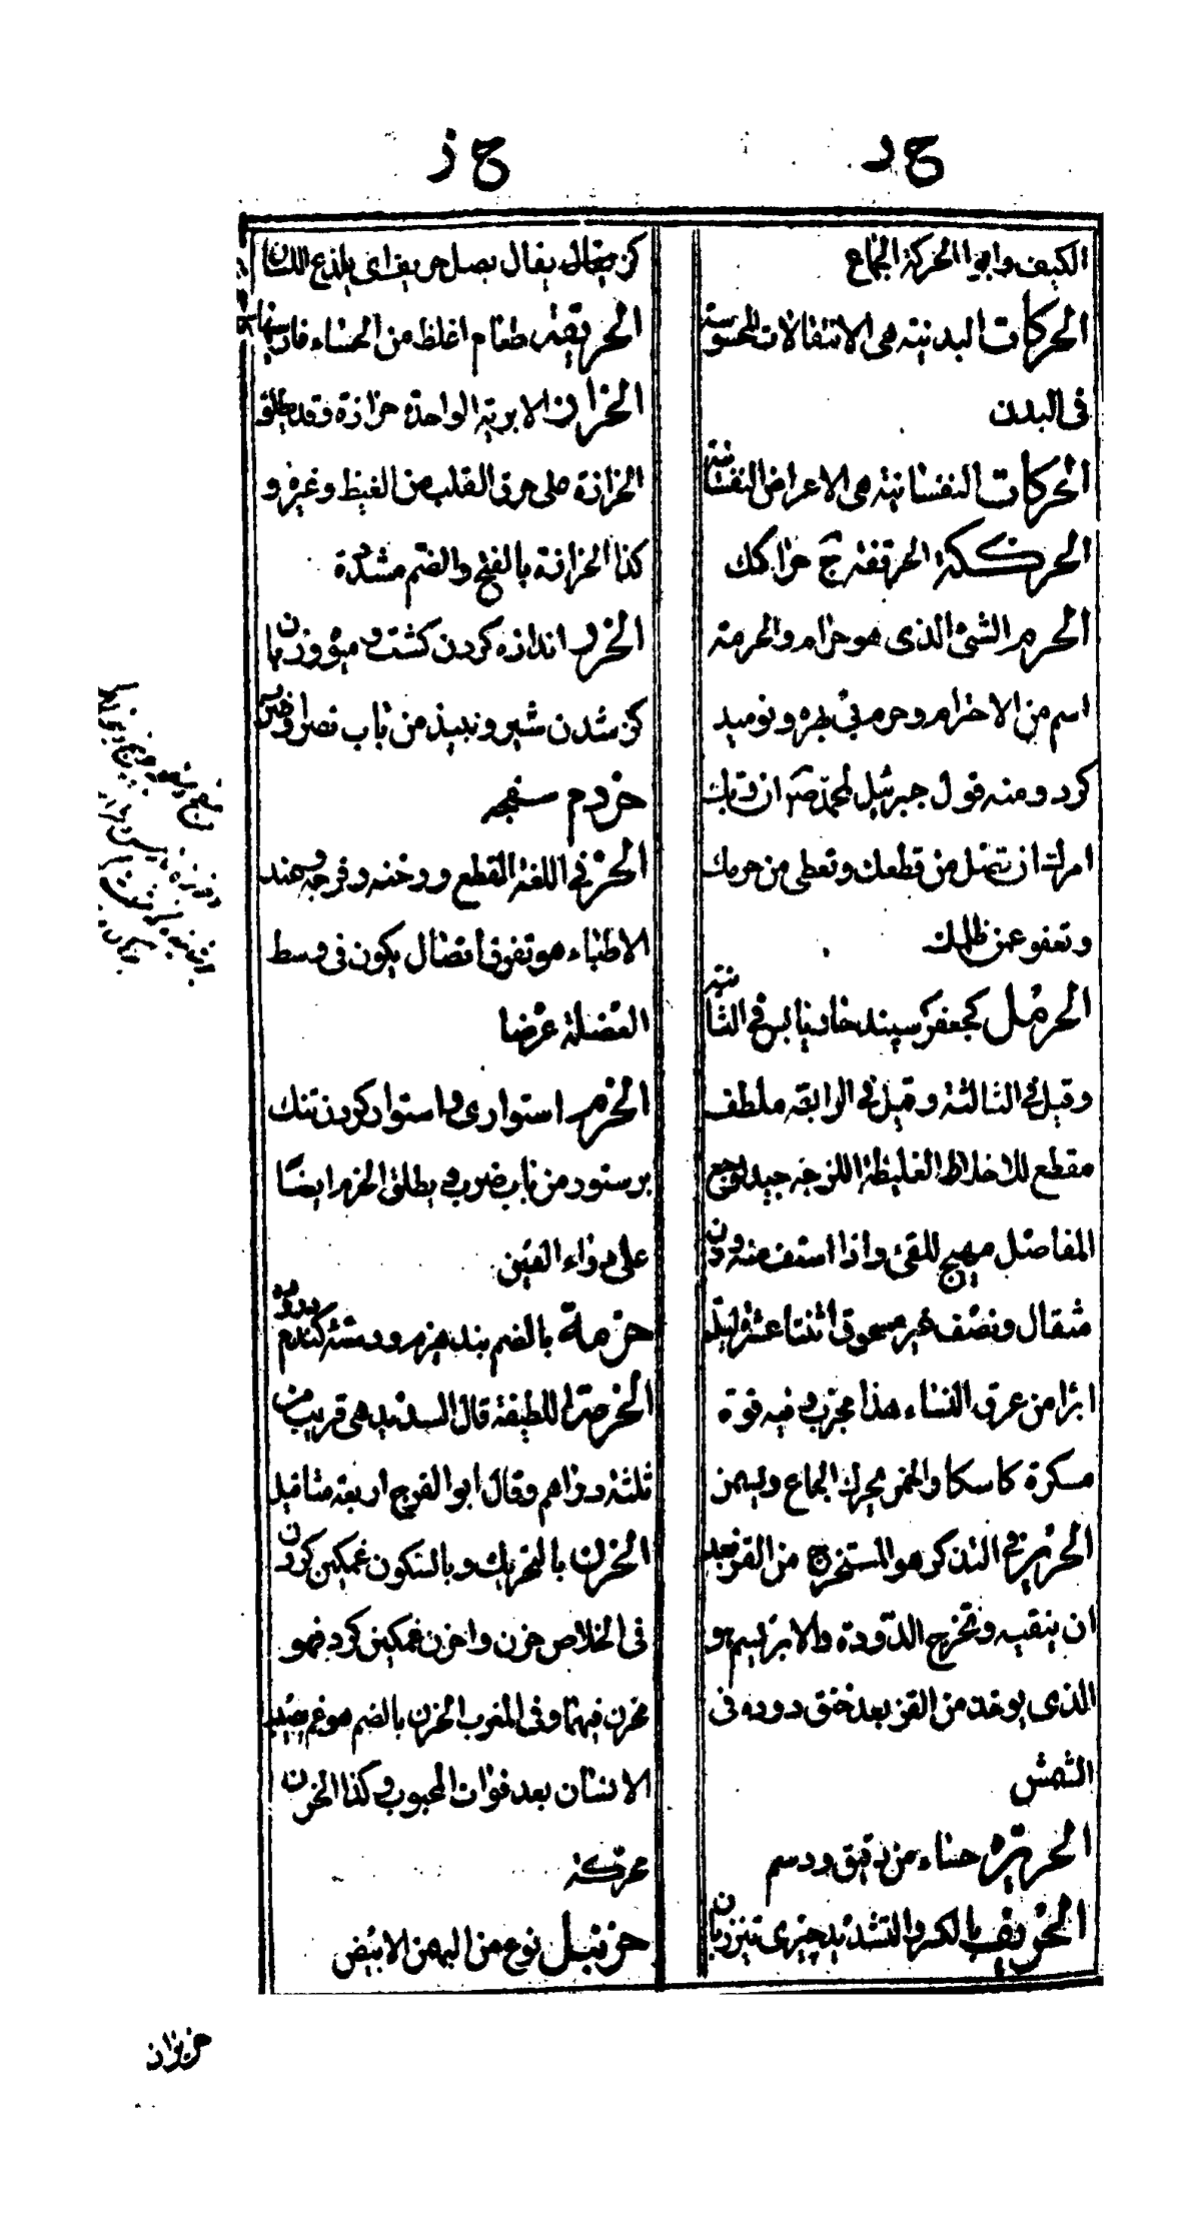 ح ر
ح ز
الكيف وابوا الحركة الجماع
الحركات البدنية هى الانتقالات المحسوسة
فى البدن
الحركات النفسانية هى الاعراض النفسانية
الحرككة الحرقفة ج حراكك
الحرم الشئ الذى هو حرام والحرمة
اسم من الاحترام وحرم بى بهره ونوميد
كرد ومنه قول جبرئيل لمحمد ص ان ربك
امرك ان تصل من قطعك وتعطى من حرمك
وتعفو عمن ظلمك
الحرمل كجعفر سپند حار يابس فى الثانية
وقيل فى الثالثة وقيل فى الرابعة ملطف
مقطع للاخلاط الغليظة اللزجة جيد لوجع
المفاصل مهيج للقئ واذا استف منه وزن
مثقال ونصف غير مسحوق اثنتا عشر ليلة
ابرا من عرق النساء هذا مجرب وفيه قوة
مسكرة كاسكار الخمر يحرك الجماع ويسمن
الحرير فى التذكر هو المستخرج من القز بعد
ان ينقبه وتخرج الدودة والابريسم هو
الذى يوخذ من القز بعد خنق دوده فى
الشمش
الحريرة حساء من دقيق ودسم
الحريف بالكسر والتشديد چيزى تيز زبان
كز يقال يقال بصل حريف اى يلذع اللسان
الحريقة طعام اغلظ من الحساء فارسيها
الحزاز الابرية الواحدة حزازة وقد يطلق
الحزازة على حرق القلب من الغيظ وغيره و
كذا الحزازة بالفتح والضم مشددة
الحزر اندازه كردن كشت و ميوه وزبان
كز شدن شير ونبيذ من باب نصر وضرب
حزدم سفيجه
الحز فى اللغة القطع ورخنه وفرجه وعند
الاطباء هو تفرق اتصال يكون فى وسط
العضلة عرضا
الحزم استوارى و استوار كردن تنك
بر ستور من باب ضرب و يطلق الحزم ايضا
على دواء العين
حزمة بالضم بند هيزم ودسته كندم درود
الحزمة اللطيفة قال السديد هى قريب من
ثلثة دراهم وقال ابو الفرج اربعة مثاقيل
الحزن بالتحريك و بالسكون غمكين كردن
فى الخلاص حزن واحزن غمكين كرد فهو
محزن فيهما وفى المغرب الحزن بالضم هو غم يصيب
الانسان بعد فوات المحبوب وكذا الحزن
محركة
حزنبل نوع من البهمن الابيض
حزيران